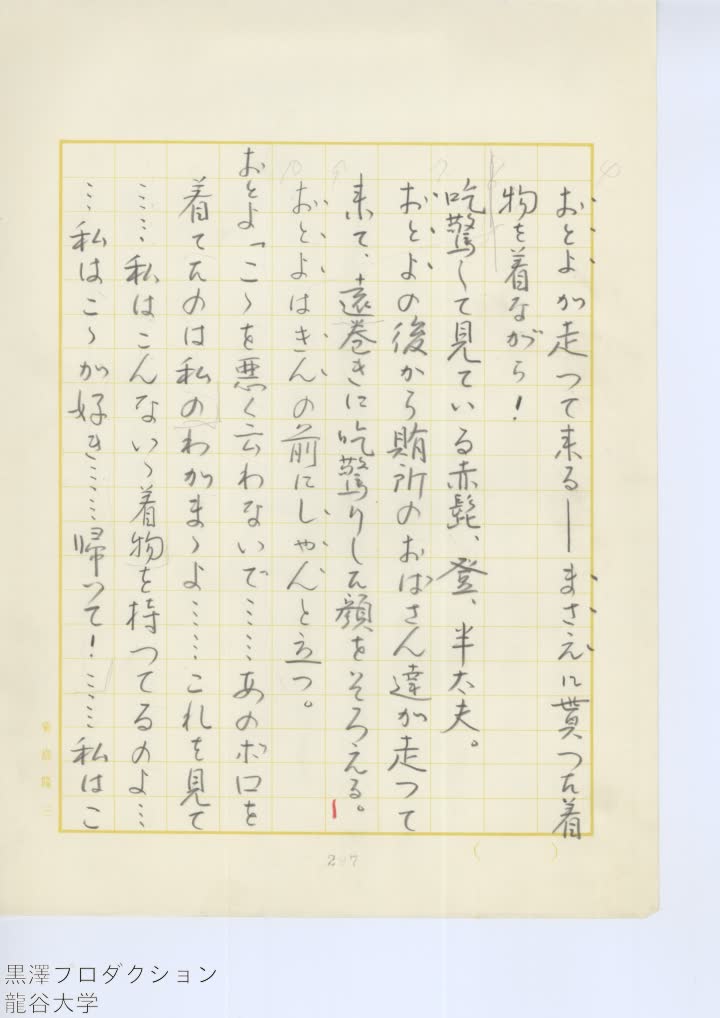 おとよが走つて来る――まさえに貰つた着
物を着ながら！
吃驚して見ている赤髭、登、半太夫。
おとよの後から賄所のおばさん達が走つて
来て、遠巻きに吃驚りした顔をそろえる。
おとよはきんの前にしやんと立つ。
おとよ「こゝを悪く云わないで……あのボロを
着てたのは私のわがまゝよ……これを見て
……私はこんないゝ着物を持つてるのよ…
…私はこゝが好き……帰つて！……私はこ
287
黒澤プロダクション
龍谷大学